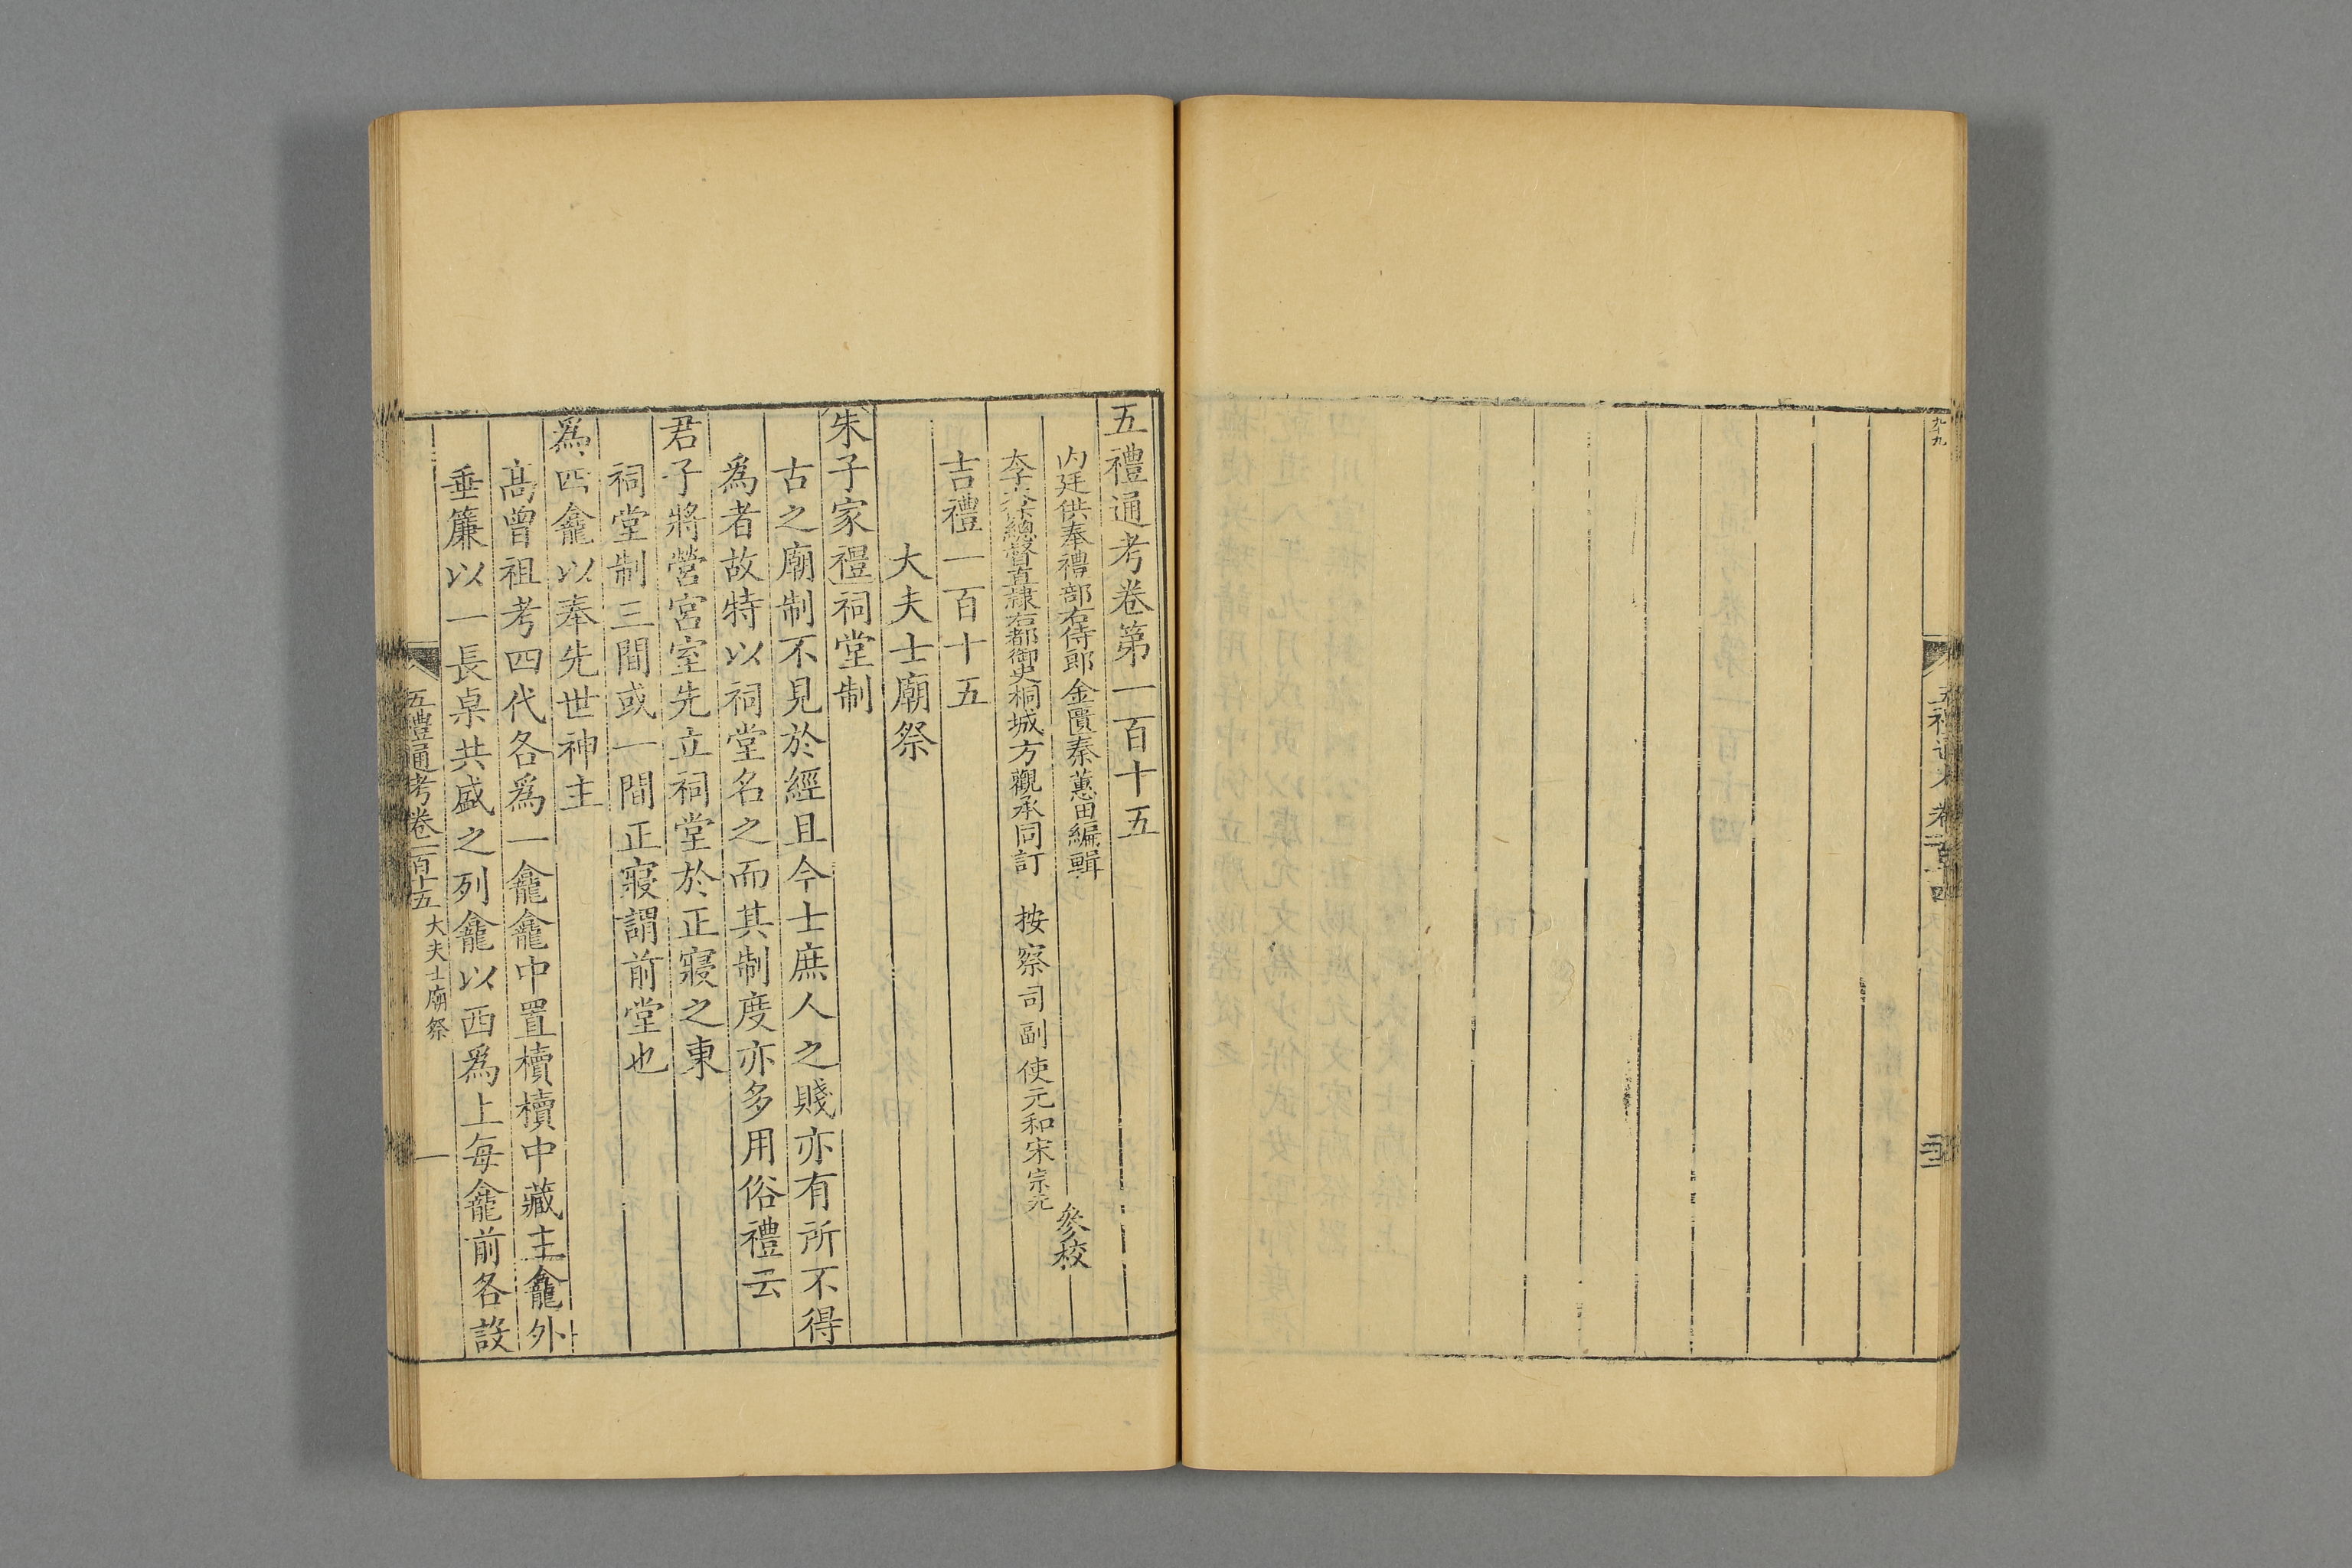 五禮通考卷第一百十五
內廷供奉禮部右侍郎金匱秦蕙田編輯
太子太保總督直隸右都御史桐城方觀承同訂 按察司副使元和宋宗元
參校
吉禮一百十五
大夫士廟祭
朱子家禮祠堂制
古之廟制不見於經且今士庶人之賤亦有所不得
爲者故特以祠堂名之而其制度亦多用俗禮云
君子將營宮室先立祠堂於正寢之東
祠堂制三間或一間正寢謂前堂也
爲四龕以奉先世神主
高曾祖考四代各爲一龕龕中置櫝櫝中藏主龕外
垂簾以一長桌共盛之列龕以西爲上每龕前各設
五禮通考卷一百十五 大夫士廟祭 一